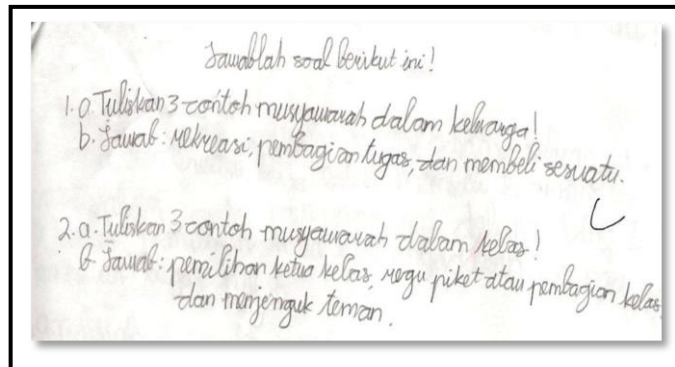 Jawablah soal berikut ini!
1. a. Tuliskan 3 contoh musyawarah dalam keluarga!
b. Jawab: rekreasi, pembagian tugas, dan membeli sesuatu.
2. a. Tuliskan 3 contoh musyawarah dalam kelas!
b Jawab: pemilihan ketua kelas, regu piket atau pembagian kelas
dan menjenguk teman.